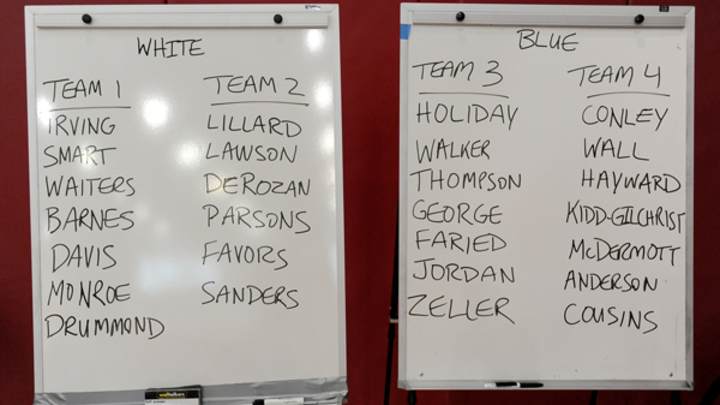 WHITE
TEAM 1
IRVING
SMART
WAITERS
BARNES
DAVIS
MONROE
DRUMMOND
TEAM 2
LILLARD
LAWSON
DEROZAN
PARSONS
FAVORS
SANDERS
BLUE
TEAM 3
HOLIDAY
WALKER
THOMPSON
GEORGE
FARIED
JORDAN
ZELLER
TEAM 4
CONLEY
WALL
HAYWARD
KIDD-GILCHRIST
McDERMOTT
ANDERSON
COUSINS